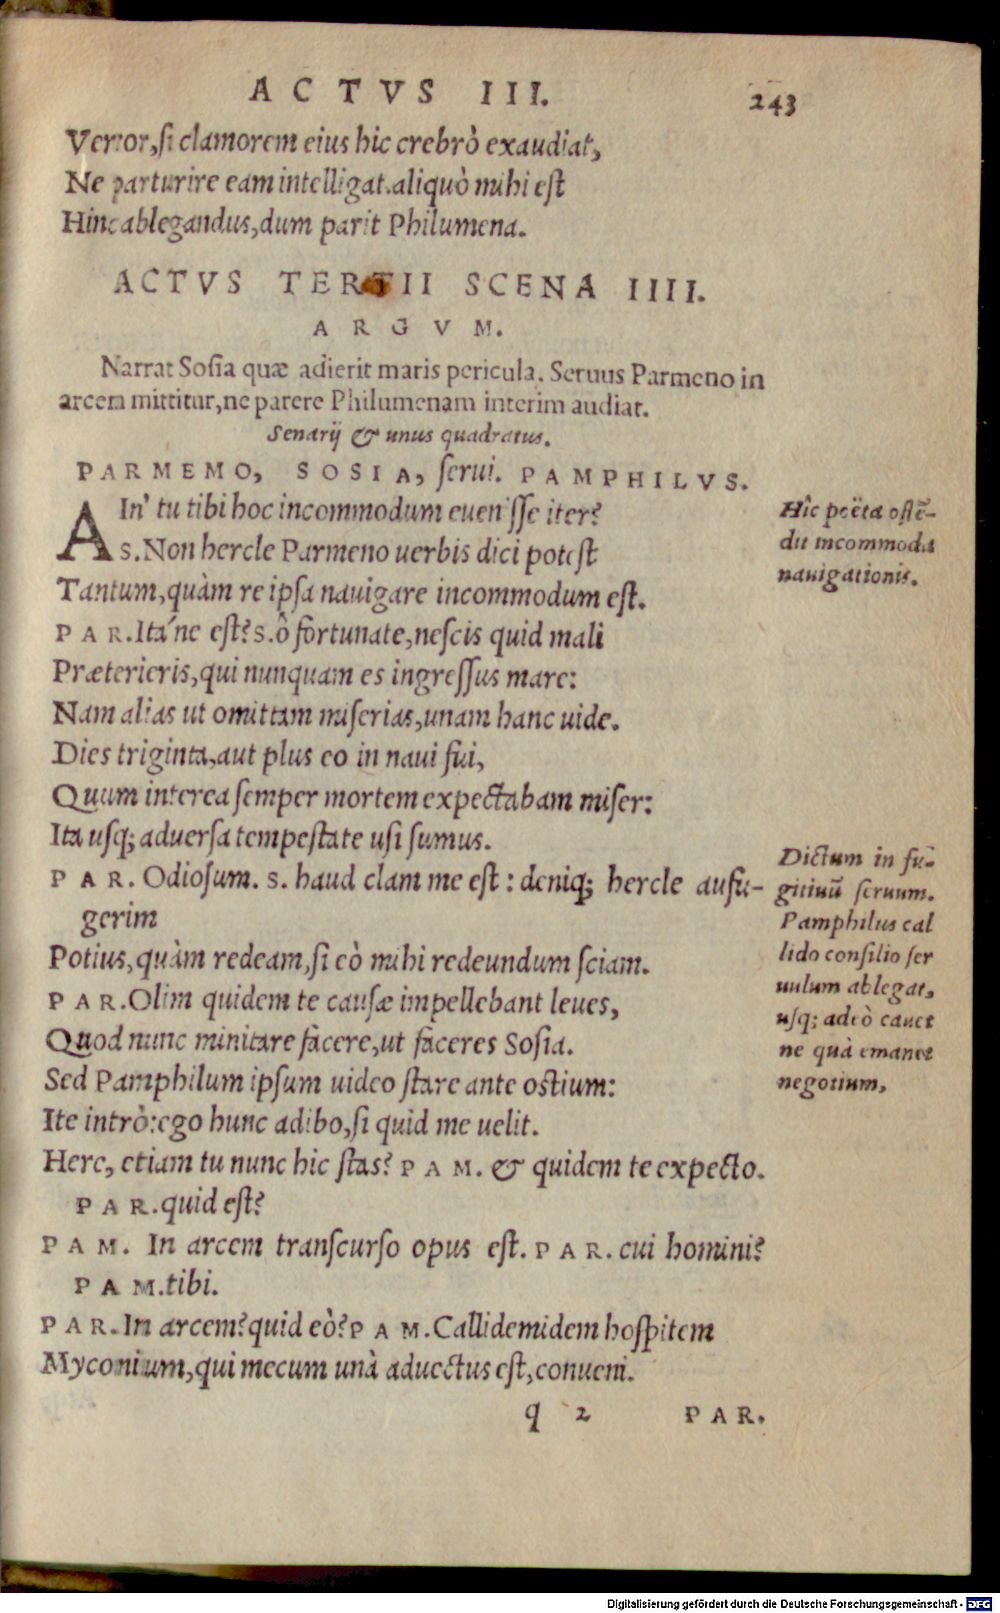 ACTVS III. 243
Vereor,ſi clamorem eius hic crebrò exaudiat,
Ne parturire eam intelligat.aliquò mihi eſt
Hinc ablegandus,dum parit Philumena.
ACTVS TERTII SCENA IIII.
ARGVM.
Narrat Soſia quæ adierit maris pericula. Seruus Parmeno in
arcem mittitur,ne parere Philumenam interim audiat.
Senarij & unus quadratus.
PARMEMO, SOSIA, ſerui. PAMPHILVS.
AIn' tu tibi hoc incommodum eueniſſe iter?
S.Non hercle Parmeno uerbis dici poteſt
Tantum,quàm re ipſa nauigare incommodum eſt.
PAR.Ita'ne eſt? S.ô fortunate,neſcis quid mali
Præterieris,qui nunquam es ingreſſus mare:
Nam alias ut omittam miſerias,unam hanc uide.
Dies triginta,aut plus eo in naui fui,
Quum interea ſemper mortem expectabam miſer:
Ita uſq; aduerſa tempeſtate uſi ſumus.
PAR. Odioſum. S. haud clam me eſt : deniq; hercle aufu-
gerim
Potius,quàm redeam,ſi eò mihi redeundum ſciam.
PAR.Olim quidem te cauſæ impellebant leues,
Quod nunc minitare facere,ut faceres Soſia.
Sed Pamphilum ipſum uideo ſtare ante oſtium:
Ite intrò:ego hunc adibo,ſi quid me uelit.
Here, etiam tu nunc hic ſtas? PAM. & quidem te expecto.
PAR.quid eſt?
PAM. In arcem tranſcurſo opus eſt. PAR. cui homini?
PAM.tibi.
PAR.In arcem?quid eò? PAM.Callidemidem hoſpitem
Myconium,qui mecum unà aduectus eſt,conueni.
q 2 PAR.
Hîc poëta oſtē-
dit incommoda
nauigationis.
Dictum in fu-
gitiuū ſeruum.
Pamphilus cal
lido conſilio ſer
uulum ablegat,
uſq; adeò cauet
ne quà emanet
negotium,
Digitalisierung gefördert durch die Deutsche Forschungsgemeinschaft - DFG